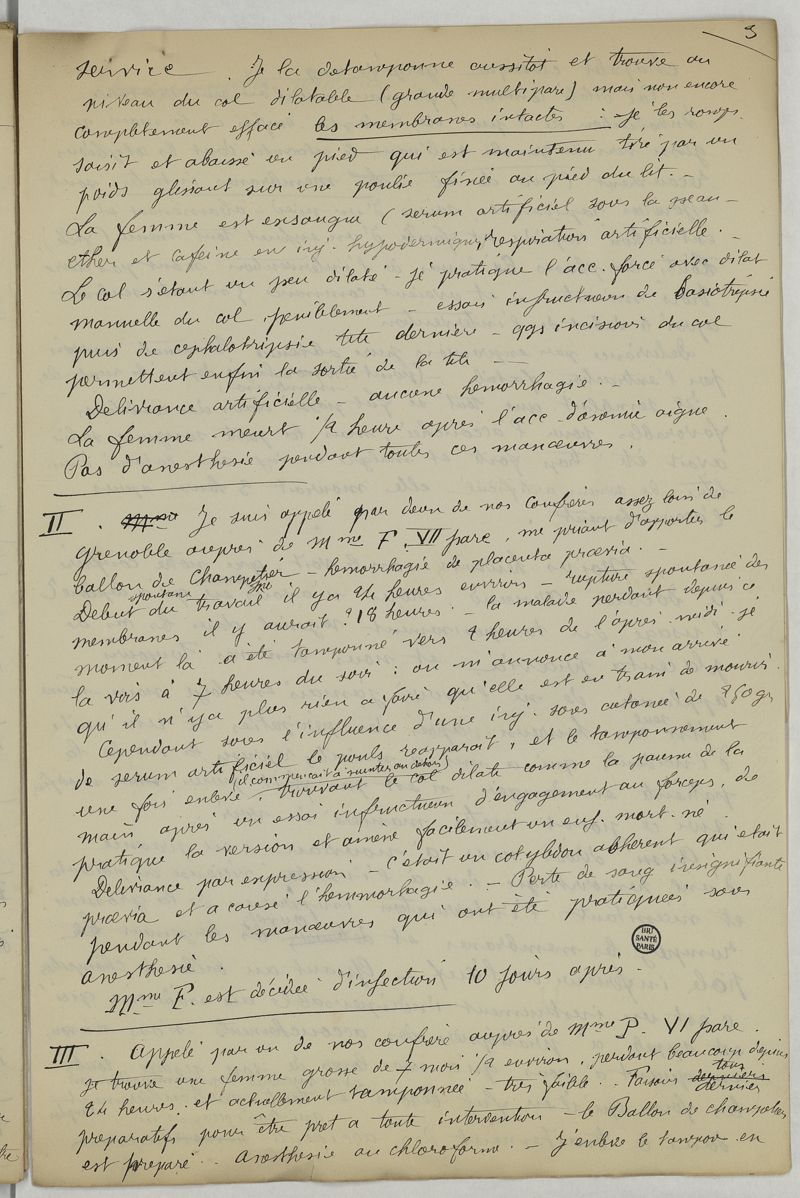 3
service. Je la detamponne aussitot et trouve au
niveau du col dilatable (grande multipare) mais non encore
completement effacé les membranes intactes : - je les romps
saisit et abaisse un pied qui est maintenu tiré par un
poids glissant sur une poulie fixée au pied du lit. -
La femme est exsangue (serum artificiel sous la peau -
ether et cafeine en inj. hypodermique, respiration artificielle. -
Le col s'étant un peu dilaté - je pratique l'acc. forcé avec dilat
manuelle du col peniblement - essais infructueux de basiotripsie
puis de cephalotripsie tete derniere - qqs incisions du col
permettent enfin la sortie de la tete -
Delivrance artificielle - aucune hemorrhagie. -
La femme meurt 1/2 heure après l'acc. d'anemie aigue.
Pas d'anesthesie pendant toutes ces manœuvres.
II. Mme Je suis appelé par deux de nos confrères assez loin de
Grenoble aupres de Mme F. VII pare, me priant d'apporter le
ballon de Champetier - hemorrhagie de placenta prævia. -
Debut du travail spontané il y a 24 heures environ - rupture spontanée des
membranes il y aurait ? 18 heures. - la malade perdant depuis ce
moment là a été tamponné vers 2 heures de l'après midi. je
la vois à 7 heures du soir : on m'annonce à mon arrivé
qu'il n'y a plus rien a faire qu'elle est en train de mourir.
Cependant sous l'influence d'une inj. sous cutanée de 250 gr
de serum artificiel le pouls reapparait, et le tamponnement
une fois enlevé (il commençait à suinter au dehors), trouvant le col dilate comme la paume de la
main après un essai infructueux d'engagement au forceps, je
pratique la version et amène facilement un enf. mort-né.
Delivrance par expression - c'était un cotyledon adherent qui etait
prævia et a causé l'hemmorhagie. - Perte de sang insignifiante
pendant les manœuvres qui ont été pratiquées sous
anesthesie.
Mme F. est décédée d'infection 10 jours après.
BIU SANTÉ PARIS
III. Appelé par un de nos confrere aupres de Mme P. VI pare.
je trouve une femme grosse de 7 mois 1/2 environ, perdant beaucoup depuis
24 heures, et actuellement tamponnée - très faible. - Faisons tous derniers
preparatifs pour être pret a toute intervention - le Ballon de champetier
est preparé. - Anesthesie au chloroforme. - J'enleve le tampon en